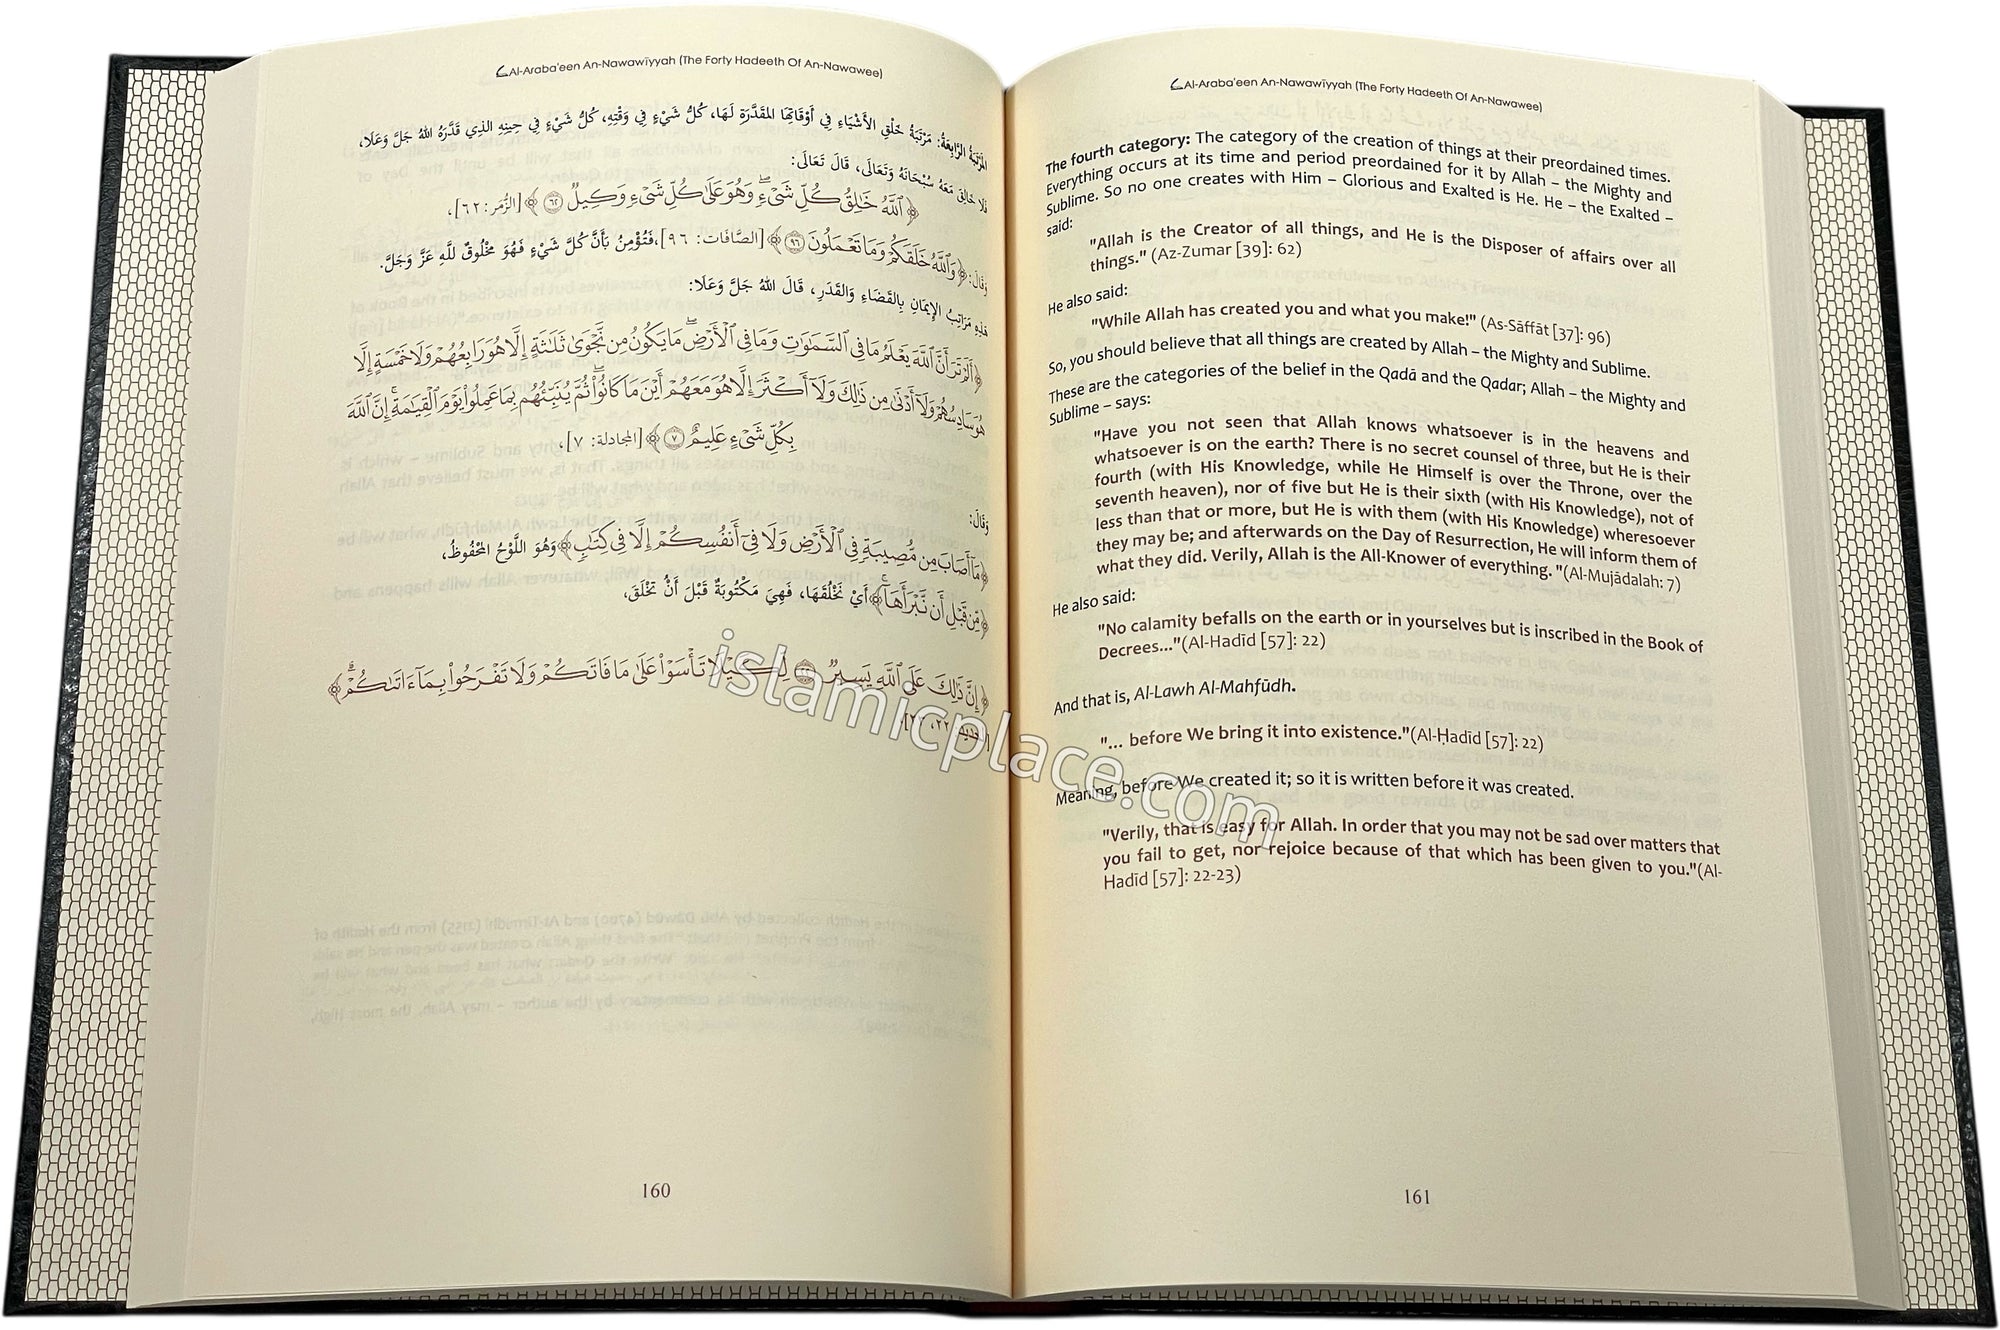 Al-Araba'een An-Nawawīyyah (The Forty Hadeeth Of An-Nawawee)
المَرْتَبَةُ الرَّابِعَةُ: مَرْتَبَةُ خَلْقِ الأَشْيَاءِ فِي أَوْقَاتِهَا المُقَدَّرَةِ لَهَا، كُلُّ شَيْءٍ فِي وَقْتِهِ، كُلُّ شَيْءٍ فِي حِينِهِ الذِي قَدَّرَهُ اللهُ جَلَّ وَعَلَا،
فَلَا خَالِقَ مَعَهُ سُبْحَانَهُ وَتَعَالَى، قَالَ تَعَالَى:
﴿ٱللَّهُ خَٰلِقُ كُلِّ شَىْءٍ ۖ وَهُوَ عَلَىٰ كُلِّ شَىْءٍ وَكِيلٌ ٦٢﴾ [الزُّمَر: ٦٢]،
وَقَالَ: ﴿وَٱللَّهُ خَلَقَكُمْ وَمَا تَعْمَلُونَ ٩٦﴾ [الصَّافَات: ٩٦]، فَنُؤْمِنُ بِأَنَّ كُلَّ شَيْءٍ فَهُوَ مَخْلُوقٌ للَّهِ عَزَّ وَجَلَّ.
هَذِهِ مَرَاتِبُ الإِيمَانِ بِالقَضَاءِ وَالقَدَرِ، قَالَ اللهُ جَلَّ وَعَلَا:
﴿أَلَمْ تَرَ أَنَّ ٱللَّهَ يَعْلَمُ مَا فِى ٱلسَّمَٰوَٰتِ وَمَا فِى ٱلْأَرْضِ ۖ مَا يَكُونُ مِن نَّجْوَىٰ ثَلَٰثَةٍ إِلَّا هُوَ رَابِعُهُمْ وَلَا خَمْسَةٍ إِلَّا
هُوَ سَادِسُهُمْ وَلَآ أَدْنَىٰ مِن ذَٰلِكَ وَلَآ أَكْثَرَ إِلَّا هُوَ مَعَهُمْ أَيْنَ مَا كَانُوا۟ ۖ ثُمَّ يُنَبِّئُهُم بِمَا عَمِلُوا۟ يَوْمَ ٱلْقِيَٰمَةِ ۚ إِنَّ ٱللَّهَ
بِكُلِّ شَىْءٍ عَلِيمٌ ٧﴾ [المجادلة: ٧]،
وَقَالَ:
﴿مَآ أَصَابَ مِن مُّصِيبَةٍ فِى ٱلْأَرْضِ وَلَا فِىٓ أَنفُسِكُمْ إِلَّا فِى كِتَٰبٍ﴾ وَهُوَ اللَّوْحُ المَحْفُوظُ،
﴿مِّن قَبْلِ أَن نَّبْرَأَهَآ ۚ﴾ أَيْ نَخْلُقَهَا، فَهِيَ مَكْتُوبَةٌ قَبْلَ أَنْ تُخْلَقَ،
﴿إِنَّ ذَٰلِكَ عَلَى ٱللَّهِ يَسِيرٌ ٢٢ لِّكَيْلَا تَأْسَوْا۟ عَلَىٰ مَا فَاتَكُمْ وَلَا تَفْرَحُوا۟ بِمَآ ءَاتَىٰكُمْ ۗ﴾
[الحديد: ٢٢، ٢٣].
160
Al-Araba'een An-Nawawīyyah (The Forty Hadeeth Of An-Nawawee)
The fourth category: The category of the creation of things at their preordained times.
Everything occurs at its time and period preordained for it by Allah – the Mighty and
Sublime. So no one creates with Him – Glorious and Exalted is He. He – the Exalted –
said:
"Allah is the Creator of all things, and He is the Disposer of affairs over all
things." (Az-Zumar [39]: 62)
He also said:
"While Allah has created you and what you make!" (As-Sāffāt [37]: 96)
So, you should believe that all things are created by Allah – the Mighty and Sublime.
These are the categories of the belief in the Qadā and the Qadar; Allah – the Mighty and
Sublime – says:
"Have you not seen that Allah knows whatsoever is in the heavens and
whatsoever is on the earth? There is no secret counsel of three, but He is their
fourth (with His Knowledge, while He Himself is over the Throne, over the
seventh heaven), nor of five but He is their sixth (with His Knowledge), not of
less than that or more, but He is with them (with His Knowledge) wheresoever
they may be; and afterwards on the Day of Resurrection, He will inform them of
what they did. Verily, Allah is the All-Knower of everything. "(Al-Mujādalah: 7)
He also said:
"No calamity befalls on the earth or in yourselves but is inscribed in the Book of
Decrees..."(Al-Hadīd [57]: 22)
And that is, Al-Lawh Al-Mahfūdh.
"... before We bring it into existence."(Al-Ḥadīd [57]: 22)
Meaning, before We created it; so it is written before it was created.
"Verily, that is easy for Allah. In order that you may not be sad over matters that
you fail to get, nor rejoice because of that which has been given to you."(Al-
Hadīd [57]: 22-23)
161
islamicplace.com